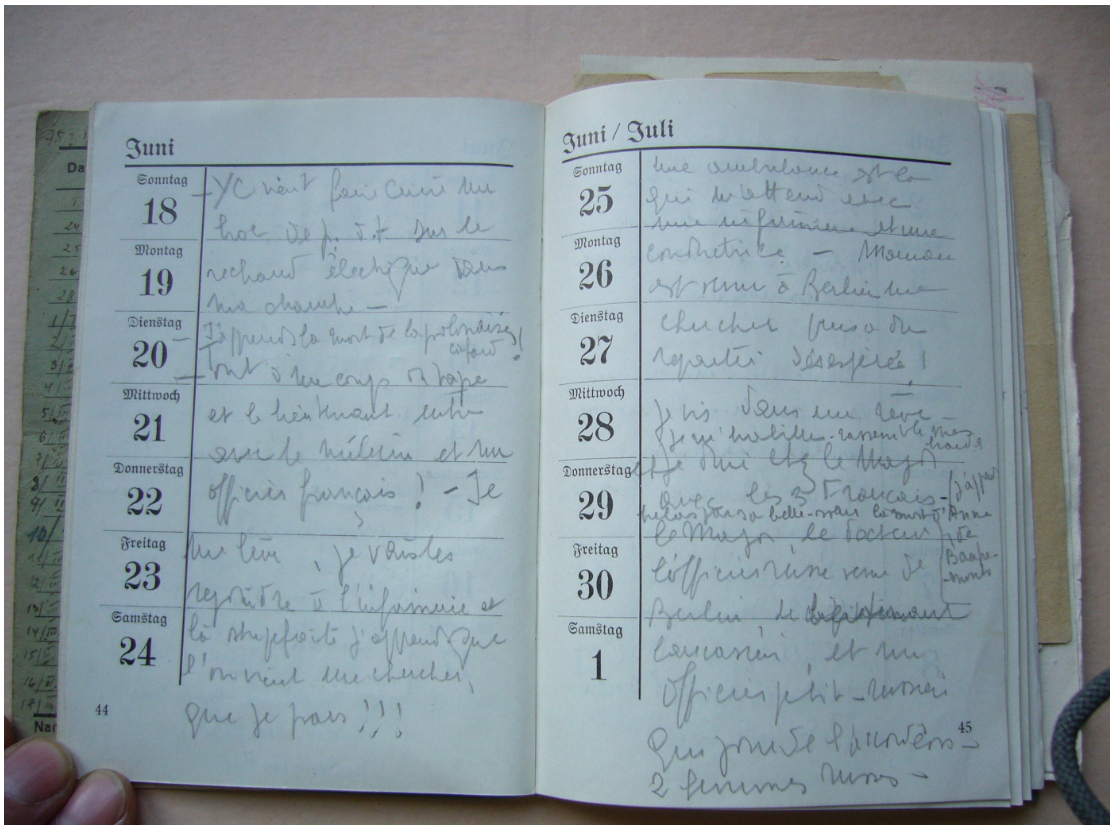 Juni
Sonntag
18
Montag
19
Dienstag
20
Mittwoch
21
Donnerstag
22
Freitag
23
Samstag
24
44
– YC vient faire cuire un
de p. d. t. sur le
réchaud électrique dans
ma chambre –
– J'apprends la mort de la polonaise,
cafard!
– Tout à une coup on tape
et le lieutenant entre
avec le médecin et un
officier français ! – Je
me lève, je vais les
rejoindre à l'infirmerie et
là stupéfaite j'apprends que
l'on vient me chercher,
que je pars !!!
Juni / Juli
Sonntag
25
Montag
26
Dienstag
27
Mittwoch
28
Donnerstag
29
Freitag
30
Samstag
1
45
une ambulance est là
qui m'attend avec
une infirmière et une
conductrice – Maman
est venue à Berlin me
chercher puis a du
repartir désespérée !
Je vis dans un rêve –
Je m'habille – rassemble mes
hardes
et je dîne chez le Major
avec les 3 Français –
(j'app
par sa belle-sœur la mort d'Anne
de
Baape-
monts
le Major, le docteur
l'officier russe venu de
Berlin, le
caucasien, et un
officier petit-russien
qui joue de l'accordéon –
2 femmes russes –